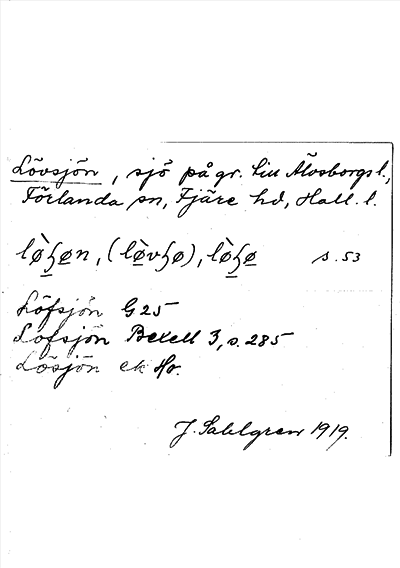 Lövsjön, sjö på gr. till Älvsborgs l.,
Förlanda sn, Fjäre hd, Hall. l.
lø̀ɧøn, (lø̀vɧø), lø̀ɧø s. 53
Löfsjön G 25
Löfsjön Bexell 3, s. 285
Lösjön ek Hr.
J. Sahlgren 1919.